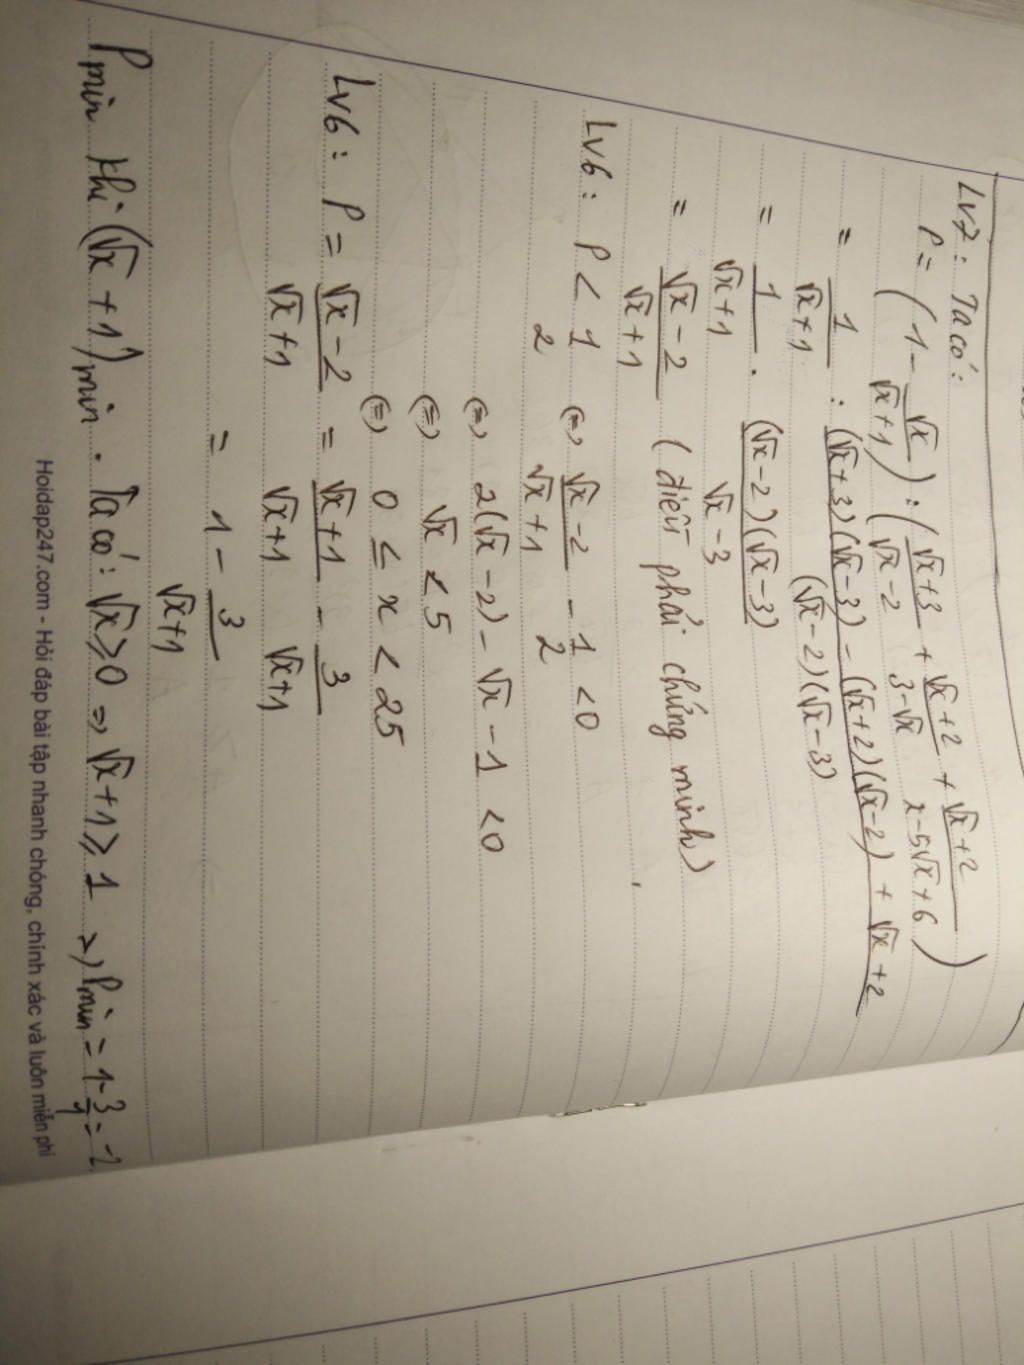 Lv7: Ta có:
P = (1 - √x/(√x+1)) : ((√x+3)/(√x-2) + (√x+2)/(3-√x) + (√x+2)/(x-5√x+6))
= 1/(√x+1) : ((√x+3)(√x-3) - (√x+2)(√x-2) + √x+2)/((√x-2)(√x-3))
= 1/(√x+1) . ((√x-2)(√x-3))/(√x-3)
= (√x-2)/(√x+1) (điều phải chứng minh)
Lv6: P < 1/2 (=) (√x-2)/(√x+1) - 1/2 < 0
(=) 2(√x-2) - √x - 1 < 0
(=) √x < 5
(=) 0 ≤ x < 25
Lv6: P = (√x-2)/(√x+1) = (√x+1)/(√x+1) - 3/(√x+1)
= 1 - 3/(√x+1)
Pmin khi (√x+1)min. Ta có: √x ≥ 0 => √x+1 ≥ 1 => Pmin = 1 - 3/1 = -2
Hoidap247.com - Hỏi đáp bài tập nhanh chóng, chính xác và luôn miễn phí